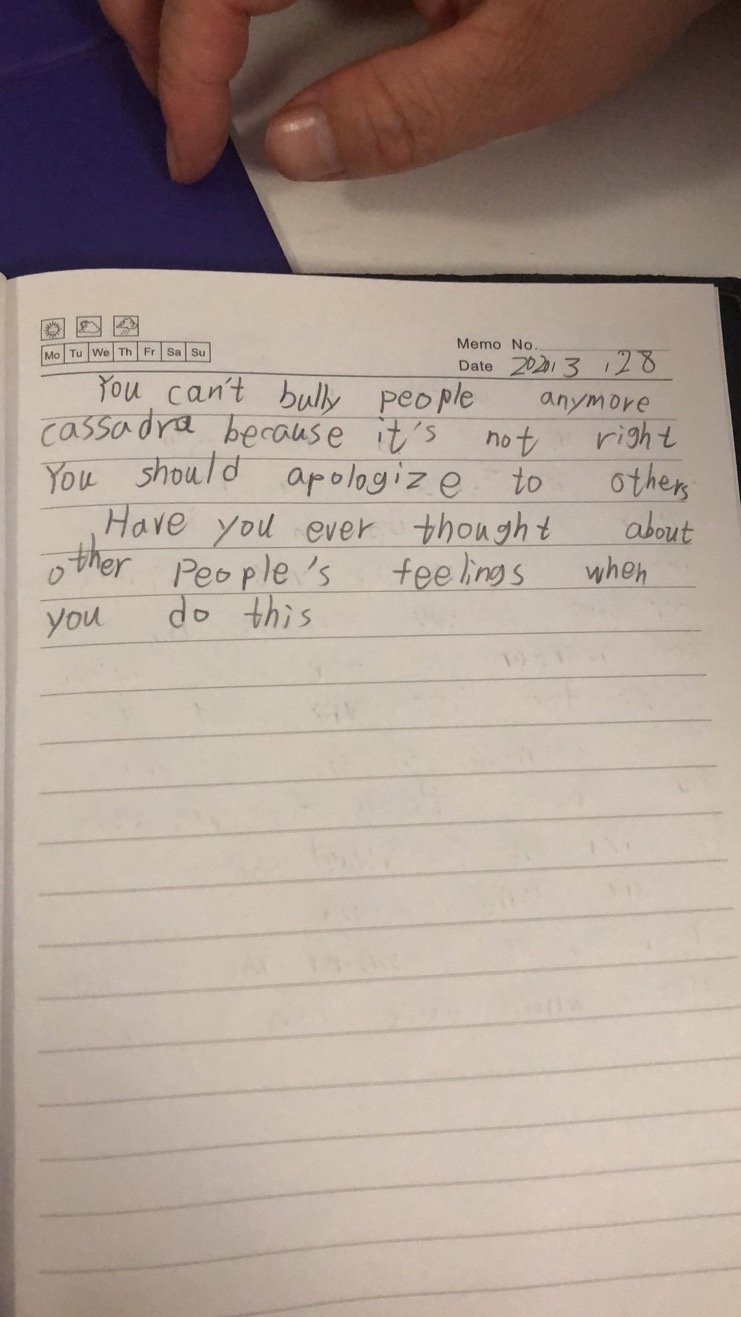 Mo Tu We Th Fr Sa Su
Memo No.
Date 2020, 3 , 28
You can't bully people anymore
cassadra because it's not right
You should apologize to others
Have you ever thought about
other people's feelings when
you do this